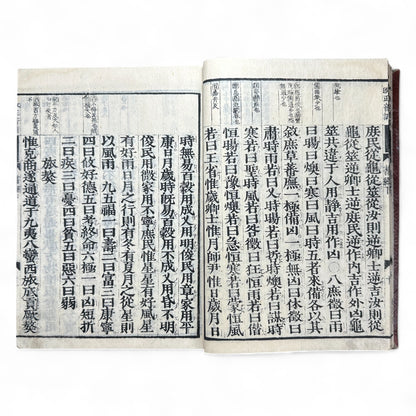 庶民從龜從筮從汝則逆卿士逆吉汝則從
龜從筮逆卿士逆庶民逆作內吉作外凶龜
筮共違于人用靜吉用作凶○八庶徵曰雨
曰暘曰燠曰寒曰風曰時五者來備各以其
敘庶草蕃廡一極備凶一極無凶曰休徵曰
肅時雨若曰乂時暘若曰哲時燠若曰謀時
寒若曰聖時風若曰咎徵曰狂恒雨若曰僭
恒暘若曰豫恒燠若曰急恒寒若曰蒙恒風
若曰王省惟歲卿士惟月師尹惟日歲月日
時無易百穀用成乂用明俊民用章家用平
康日月歲時既易百穀用不成乂用昏不明
俊民用微家用不寧庶民惟星星有好風星
有好雨日月之行則有冬有夏月之從星則
以風雨○九五福一曰壽二曰富三曰康寧
四曰攸好德五曰考終命六極一曰凶短折
二曰疾三曰憂四曰貧五曰惡六曰弱
旅獒
惟克商遂通道于九夷八蠻西旅底貢厥獒